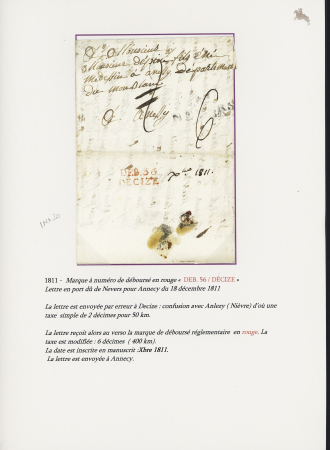 A Monsieur
Monsieur
medecin à département
du montblanc
à
DEB. 56
DÉCIZE
Xbre 1811.
1811 - Marque à numéro de déboursé en rouge « DEB. 56 / DÉCIZE »
Lettre en port dû de Nevers pour Annecy du 18 décembre 1811
La lettre est envoyée par erreur à Decize : confusion avec Anlezy ( Nièvre) d'où une
taxe simple de 2 décimes pour 50 km.
La lettre reçoit alors au verso la marque de déboursé réglementaire en rouge. La
taxe est modifiée : 6 décimes ( 400 km).
La date est inscrite en manuscrit :Xbre 1811.
La lettre est envoyée à Annecy.